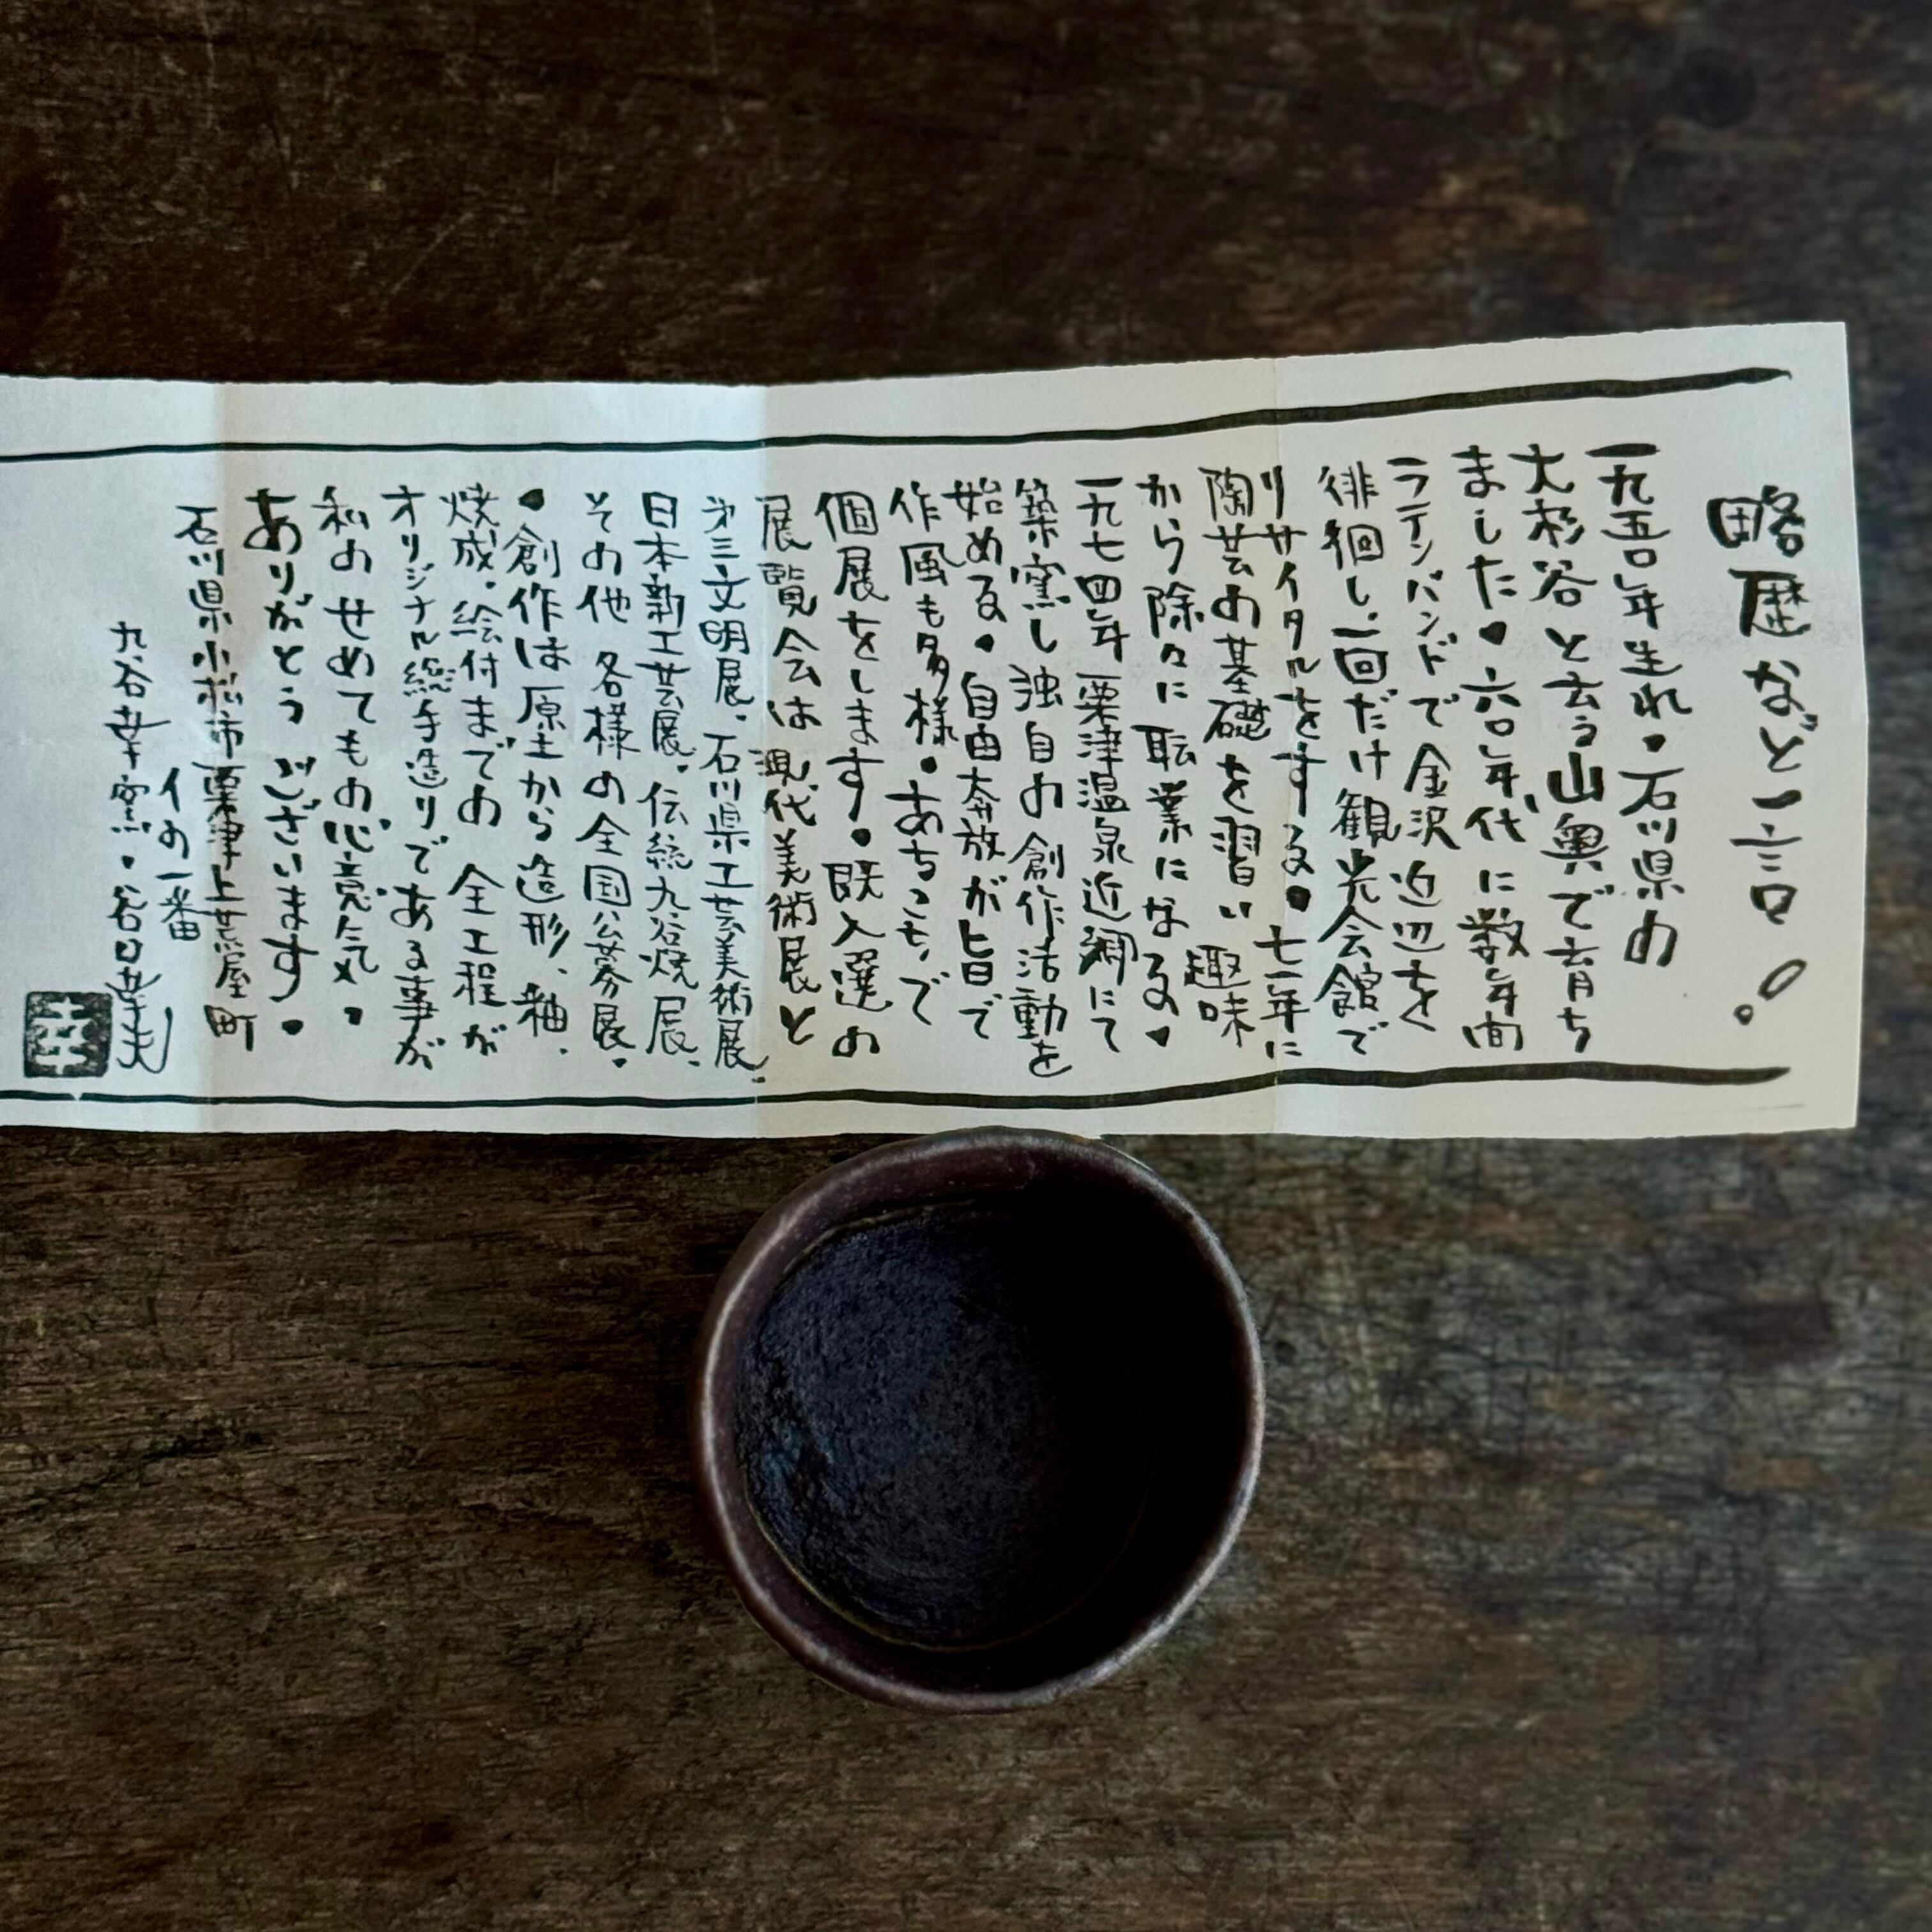 略歴など一言!
一九五〇年生れ。石川県の
大杉谷と云う山奥で育ち
ました。六〇年代に数年間
ラテンバンドで金沢近辺を
徘徊し、一回だけ観光会館で
リサイタルをする。七一年に
陶芸の基礎を習い趣味
から除々に職業になる。
一九七四年粟津温泉近郷にて
築窯し独自の創作活動を
始める。自由奔放が旨で
作風も多様。あちこちで
個展をします。既入選の
展覧会は現代美術展と
第三文明展、石川県工芸美術展、
日本新工芸展、伝統九谷焼展、
その他各様の全国公募展。
・創作は原土から造形、釉、
焼成、絵付までの全工程が
オリジナル総手造りである事が
私のせめてもの心意気。
ありがとうございます。
石川県小松市粟津上荒屋町
イの一番
九谷幸窯・谷口幸夫
幸